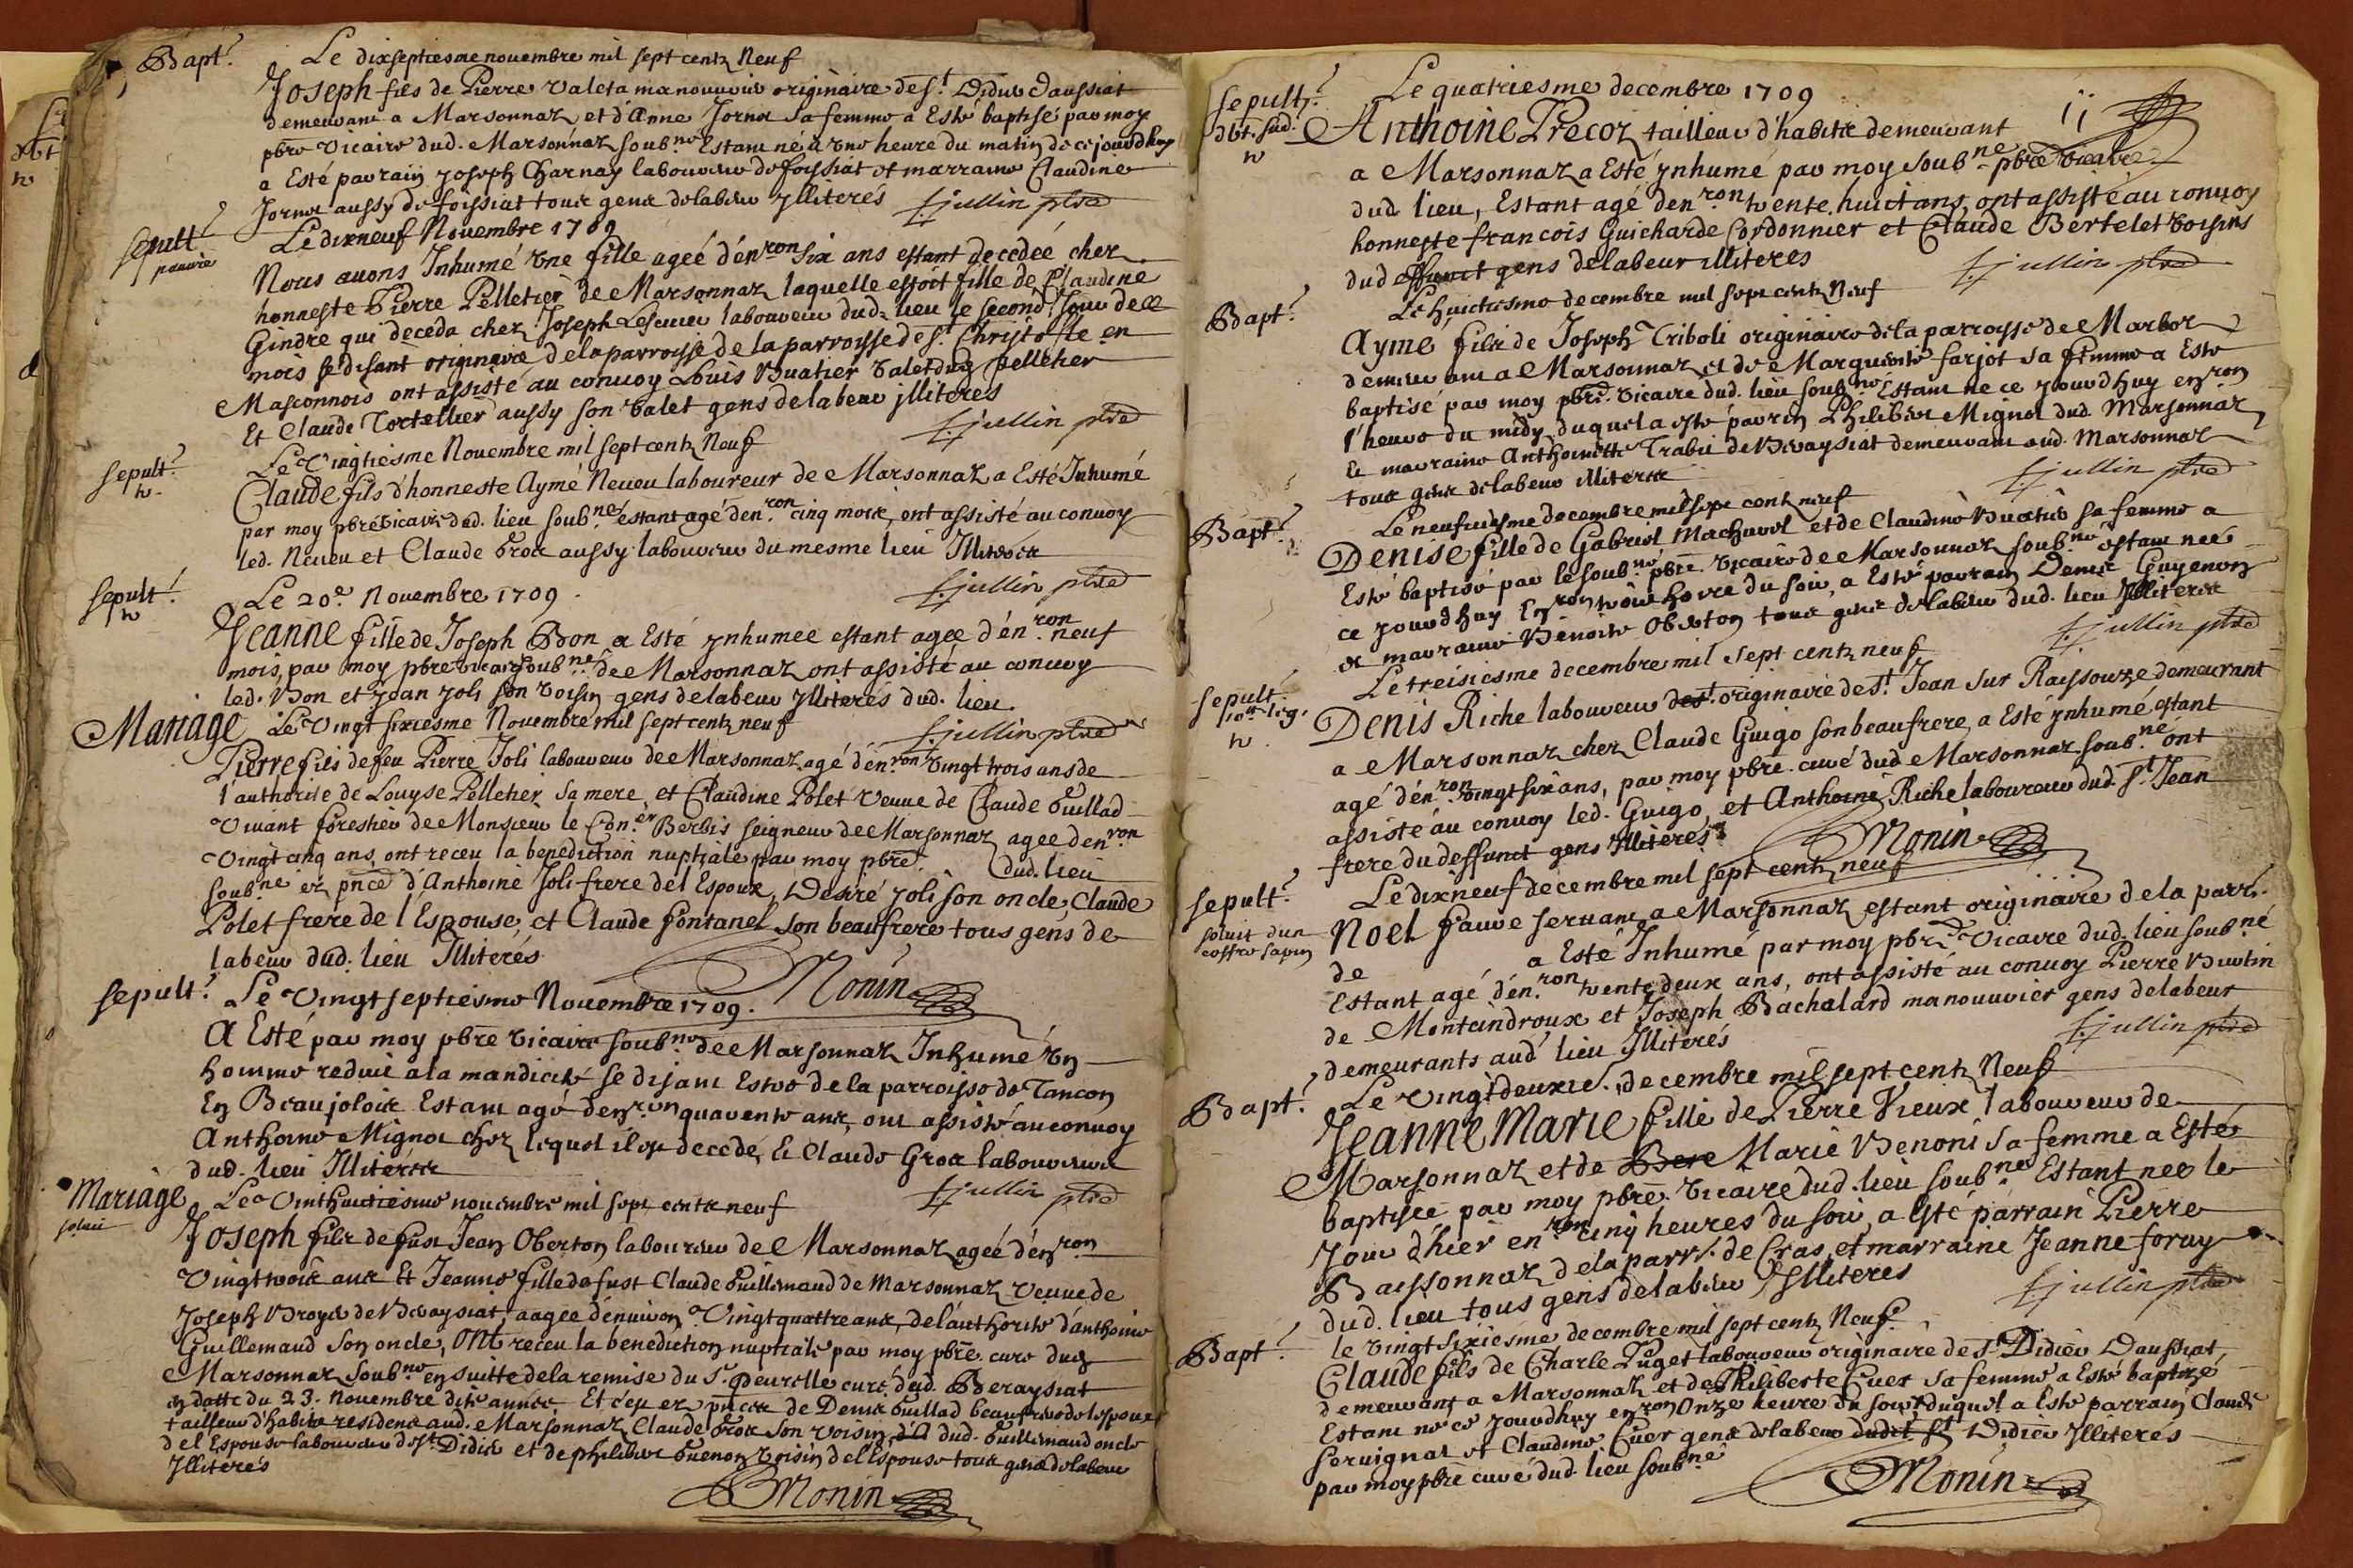 Bapt.
Le dixseptiesme novembre mil sept centz Neuf
Joseph fils de Pierre Valet a manouvrier originaire de St. Didier d'aussiat
demeurant a Marsonnaz et d'Anne Jornet sa femme a Esté baptisé par moy
pbre vicaire dud. Marsonnaz soub.né Estant né a une heure du matin de ce jourdhuy
a Esté parrain Joseph Charnay laboureur de foissiat et marraine Claudine
Jornet aussy de foissiat tous gens de labeur Illiterés f. jullin ptre
sepult.
pauvre
Le dixneuf Novembre 1709
Nous avons Inhumé une fille ageé d'én.ron six ans estant decedeé chez
honneste Pierre Pelletier de Marsonnaz laquelle estoit fille de Claudine
Gindre qui deceda chez Joseph Lescuier laboureur dud. lieu le second jour de ce
mois se disant originaire de la parroisse de la parroisse de St. Christofle en
Masconnois ont assisté au convoy Louis Buatier valet dud. pelletier
Et Claude Tortellier aussy son valet gens de labeur jlliteres
f. jullin ptre
sepult.
Le Vingtiesme Novembre mil sept centz Neuf
Claude fils d'honneste Aymé Neveu laboureur de Marsonnaz a Esté Inhumé
par moy pbre vicaire dud. lieu soub.né estant agé d'en.ron cinq mois, ont assisté au convoy
led. Neveu et Claude Grox aussy laboureur du mesme lieu Illiterés
f. jullin ptre
sepult.
Le 20e Novembre 1709.
Jeanne fille de Joseph Bon a Esté ynhumeé estant ageé d'én.ron neuf
mois, par moy pbre vicaire soub.né de Marsonnaz ont assisté au convoy
led. Bon et Jean Joli son voisin gens de labeur Illiterés dud. lieu.
f. jullin ptre
Mariage
Le Vingt sixiesme Novembre mil sept centz neuf
Pierre fils de feu Pierre Joli laboureur de Marsonnaz agé d'én.ron vingt trois ans de
l'authorité de Louyse Pelletier sa mere, et Claudine Polet veuve de Claude Guillad
Vivant forestier de Monsieur le Con.er Berbis seigneur de Marsonnaz ageé d'en.ron
Vingt cinq ans, ont receu la benediction nuptiale par moy pbre. dud. lieu
soub.né en pnce d'Anthoine Joli frere de l'Espoux, Desiré Joli son oncle, Claude
Polet frere de l'Espouse, et Claude fontanel son beaufrere tous gens de
labeur dud. lieu Illiterés
Monin
sepult.
Le Vingtseptiesme Novembre 1709.
A Esté par moy pbre vicaire soub.né de Marsonnaz Inhumé un
homme reduit a la mandicité se disant Estre de la parroisse de Tancon
En Beaujolois Estant agé d'en.ron quarente ans, ont assisté au convoy
Anthoine Mignot chez lequel il est decedé, et Claude Grox laboureurs
dud. lieu Illiterés
f. jullin ptre
Mariage
solui
Le Vinthuictiesme novembre mil sept centz neuf
Joseph fils de fust Jean Oberton laboureur de Marsonnaz ageé d'en.ron
Vingt trois ans Et Jeanne fille de fust Claude Guillemaud de Marsonnaz Veuve de
Joseph Broyer de Beraysiat, aageé d'environ Vingt quattre ans, de l'authorité d'anthoine
Guillemaud son oncle, Ont receu la benediction nuptiale par moy pbre. curé dud.
Marsonnaz soub.né en suitte de la remise du Sr. Peurelle curé dud. Beraysiat
en datte du 23. Novembre dite année. Et c'eu en pnces de Denis Guillad beaufrere de lespoux
tailleur d'habits residens aud. Marsonnaz, Claude Grox son voisin, dud. Guillemaud oncle
de l'Espouse laboureur de St. Didier et de philibert Guenon voisin de l'Espouse tous gens de labeur
Illiterés
Monin
sepult.
Le quatriesme decembre 1709
11
Anthoine Precoz tailleur d'habits demeurant
a Marsonnaz a Esté ynhumé par moy soub.né pbre vicaire
dud. lieu, Estant agé d'en.ron trente huict ans, ont assisté au convoy
honneste francois Guicharde Cordonnier et Claude Bertelet voisins
dud. deffunct gens de labeur illiteres
f. jullin ptre
Bapt.
Le huictiesme decembre mil sept centz Neuf
Aymé fils de Joseph Triboli originaire de la parroysse de Marboz
demeurant a Marsonnaz et de Marguerite farjot sa femme a Esté
baptisé par moy pbre. vicaire dud. lieu soub.né Estant né ce jourdhuy en.ron
l'heure du midy, duquel a esté parrin Philibert Mignot dud. Marsonnaz
Et marraine Anthoinette Trabli de Beraysiat demeurant aud. Marsonnaz
tous gens de labeur illiterés
f. jullin ptre
Bapt.
Le neufviesme decembre mil sept centz neuf
Denise fille de Gabriel Machurel et de Claudine Buatier sa femme a
Esté baptisé par le soub.né pbre vicaire de Marsonnaz soub.né estant neé
ce jourdhuy En.ron trois heures du soir, a Esté parrain Denis Guyenon
et marraine Benoite Oberton tous gens de labeur dud. lieu Illiterés
f. jullin ptre
sepult.
Le treisiesme decembre mil sept centz neuf
Denis Riche laboureur dest. originaire de St. Jean sur Rayssouze demeurant
a Marsonnaz chez Claude Guigo son beaufrere, a Esté ynhumé, estant
agé d'én.ron vingt six ans, par moy pbre. curé dud. Marsonnaz soub.né ont
assisté au convoy led. Guigo, et Anthoine Riche laboureur dud. St. Jean
frere du deffunct gens Illiterés
Monin
sepult.
soluit d'un
coffre sapin
Le dixneuf decembre mil sept centz neuf
Noel pauvre servant a Marsonnaz estant originaire de la parr.
de a Esté Inhumé par moy pbre vicaire dud. lieu soub.né
Estant agé d'én.ron trente deux ans, ont assisté au convoy Pierre Buatin
de Montcindroux et Joseph Bachalard manouvrier gens de labeur
demeurants aud. lieu Illiterés
f. jullin ptre
Bapt.
Le vingt deuxies. decembre mil sept centz Neuf
Jeanne Marie fille de Pierre Vieux laboureur de
Marsonnaz et de Bere Marie Benoni sa femme a Esté
baptiseé par moy pbre. vicaire dud. lieu soub.né Estant neé le
Jour d'hier en.ron cinq heures du soir, a esté parrain Pierre
Baissonnaz de la parr. de Cras, et marraine Jeanne foray
dud. lieu tous gens de labeur Illiteres
f. jullin ptre
Bapt.
le vingt sixiesme decembre mil sept centz Neuf.
Claude fils de Charle Puget laboureur originaire de St. Didier Daussiat,
demeurant a Marsonnaz et de Philiberte Cuer sa femme a Esté baptisé
Estant né ce jourdhuy en.ron Onze heure du soir duquel a Esté parrain Claude
Servignat et Claudine Cuer gens de labeur dudit St Didier Illiterés
par moy pbre curé dud. lieu soub.né
Monin